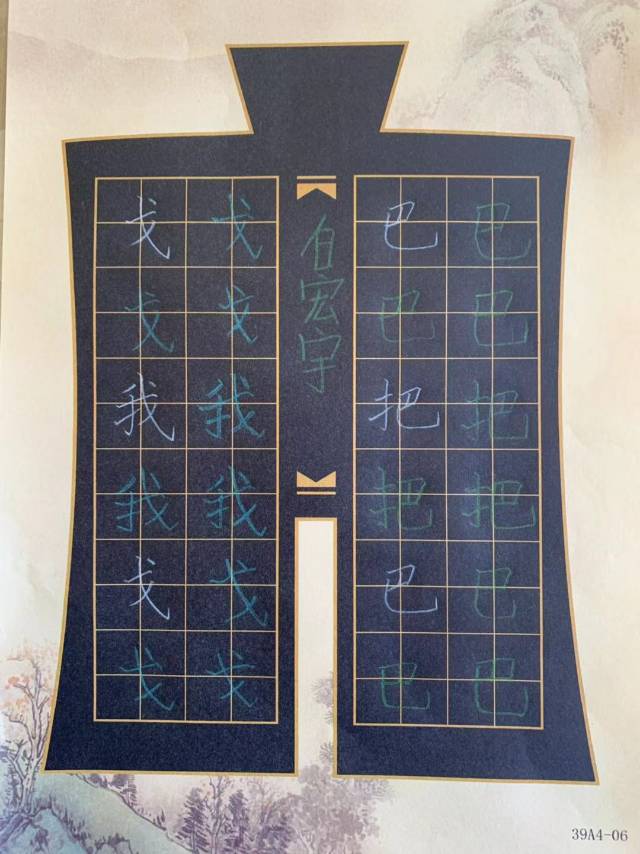 戈 戈 巴 巴
戈 戈 巴 巴
我 我 把 把
我 我 把 把
戈 戈 巴 巴
戈 戈 巴 巴
白宏宇
39A4-06